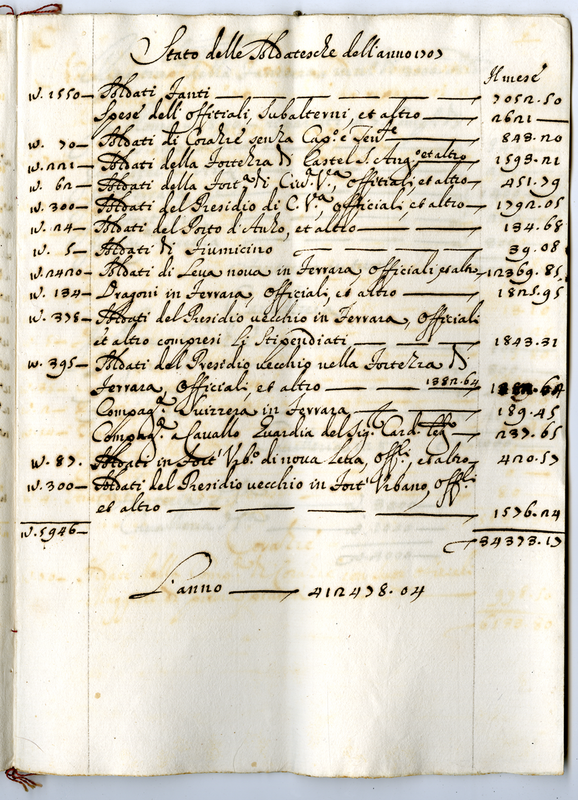 Stato delle Soldatesche dell'anno 1707
Il mese
n. 1550 Soldati Fanti 7052.50
Spese dell'offitiali, Subalterni, et altro 2621
n. 70 Soldati di Corazze senza Cap.o e Ten.te 848.20
n. 221 Soldati della Fortezza di Castel S. Ang.o et altro 1593.21
n. 62 Soldati della Fort.a di Civ.a V.a, offitiali, et altro 451.79
n. 300 Soldati del Presidio di C. V.a, officiali, et altro 1792.05
n. 24 Soldati del Porto d'Anzo, et altro 134.68
n. 5 Soldati di Fiumicino 39.08
n. 2420 Soldati di Leva nova in Ferrara, officiali, et altro 12369.85
n. 134 Dragoni in Ferrara, officiali, et altro 1825.95
n. 378 Soldati del Presidio vecchio in Ferrara, officiali
et altro compresi li Stipendiati 1843.31
n. 395 Soldati del Presidio vecchio nella Fortezza di
Ferrara, officiali, et altro 1382.64
Compag.a Suizzera in Ferrara 189.45
Compag.a a Cavallo Guardia del Sig.r Card. Leg.o 237.65
n. 87 Soldati in Fort' Urb.o di nova Leva, off.li, et altro 420.57
n. 300 Soldati del Presidio vecchio in Fort' Urbano, off.li
et altro 1576.24
n. 5946 34373.17
L'anno 412478.04